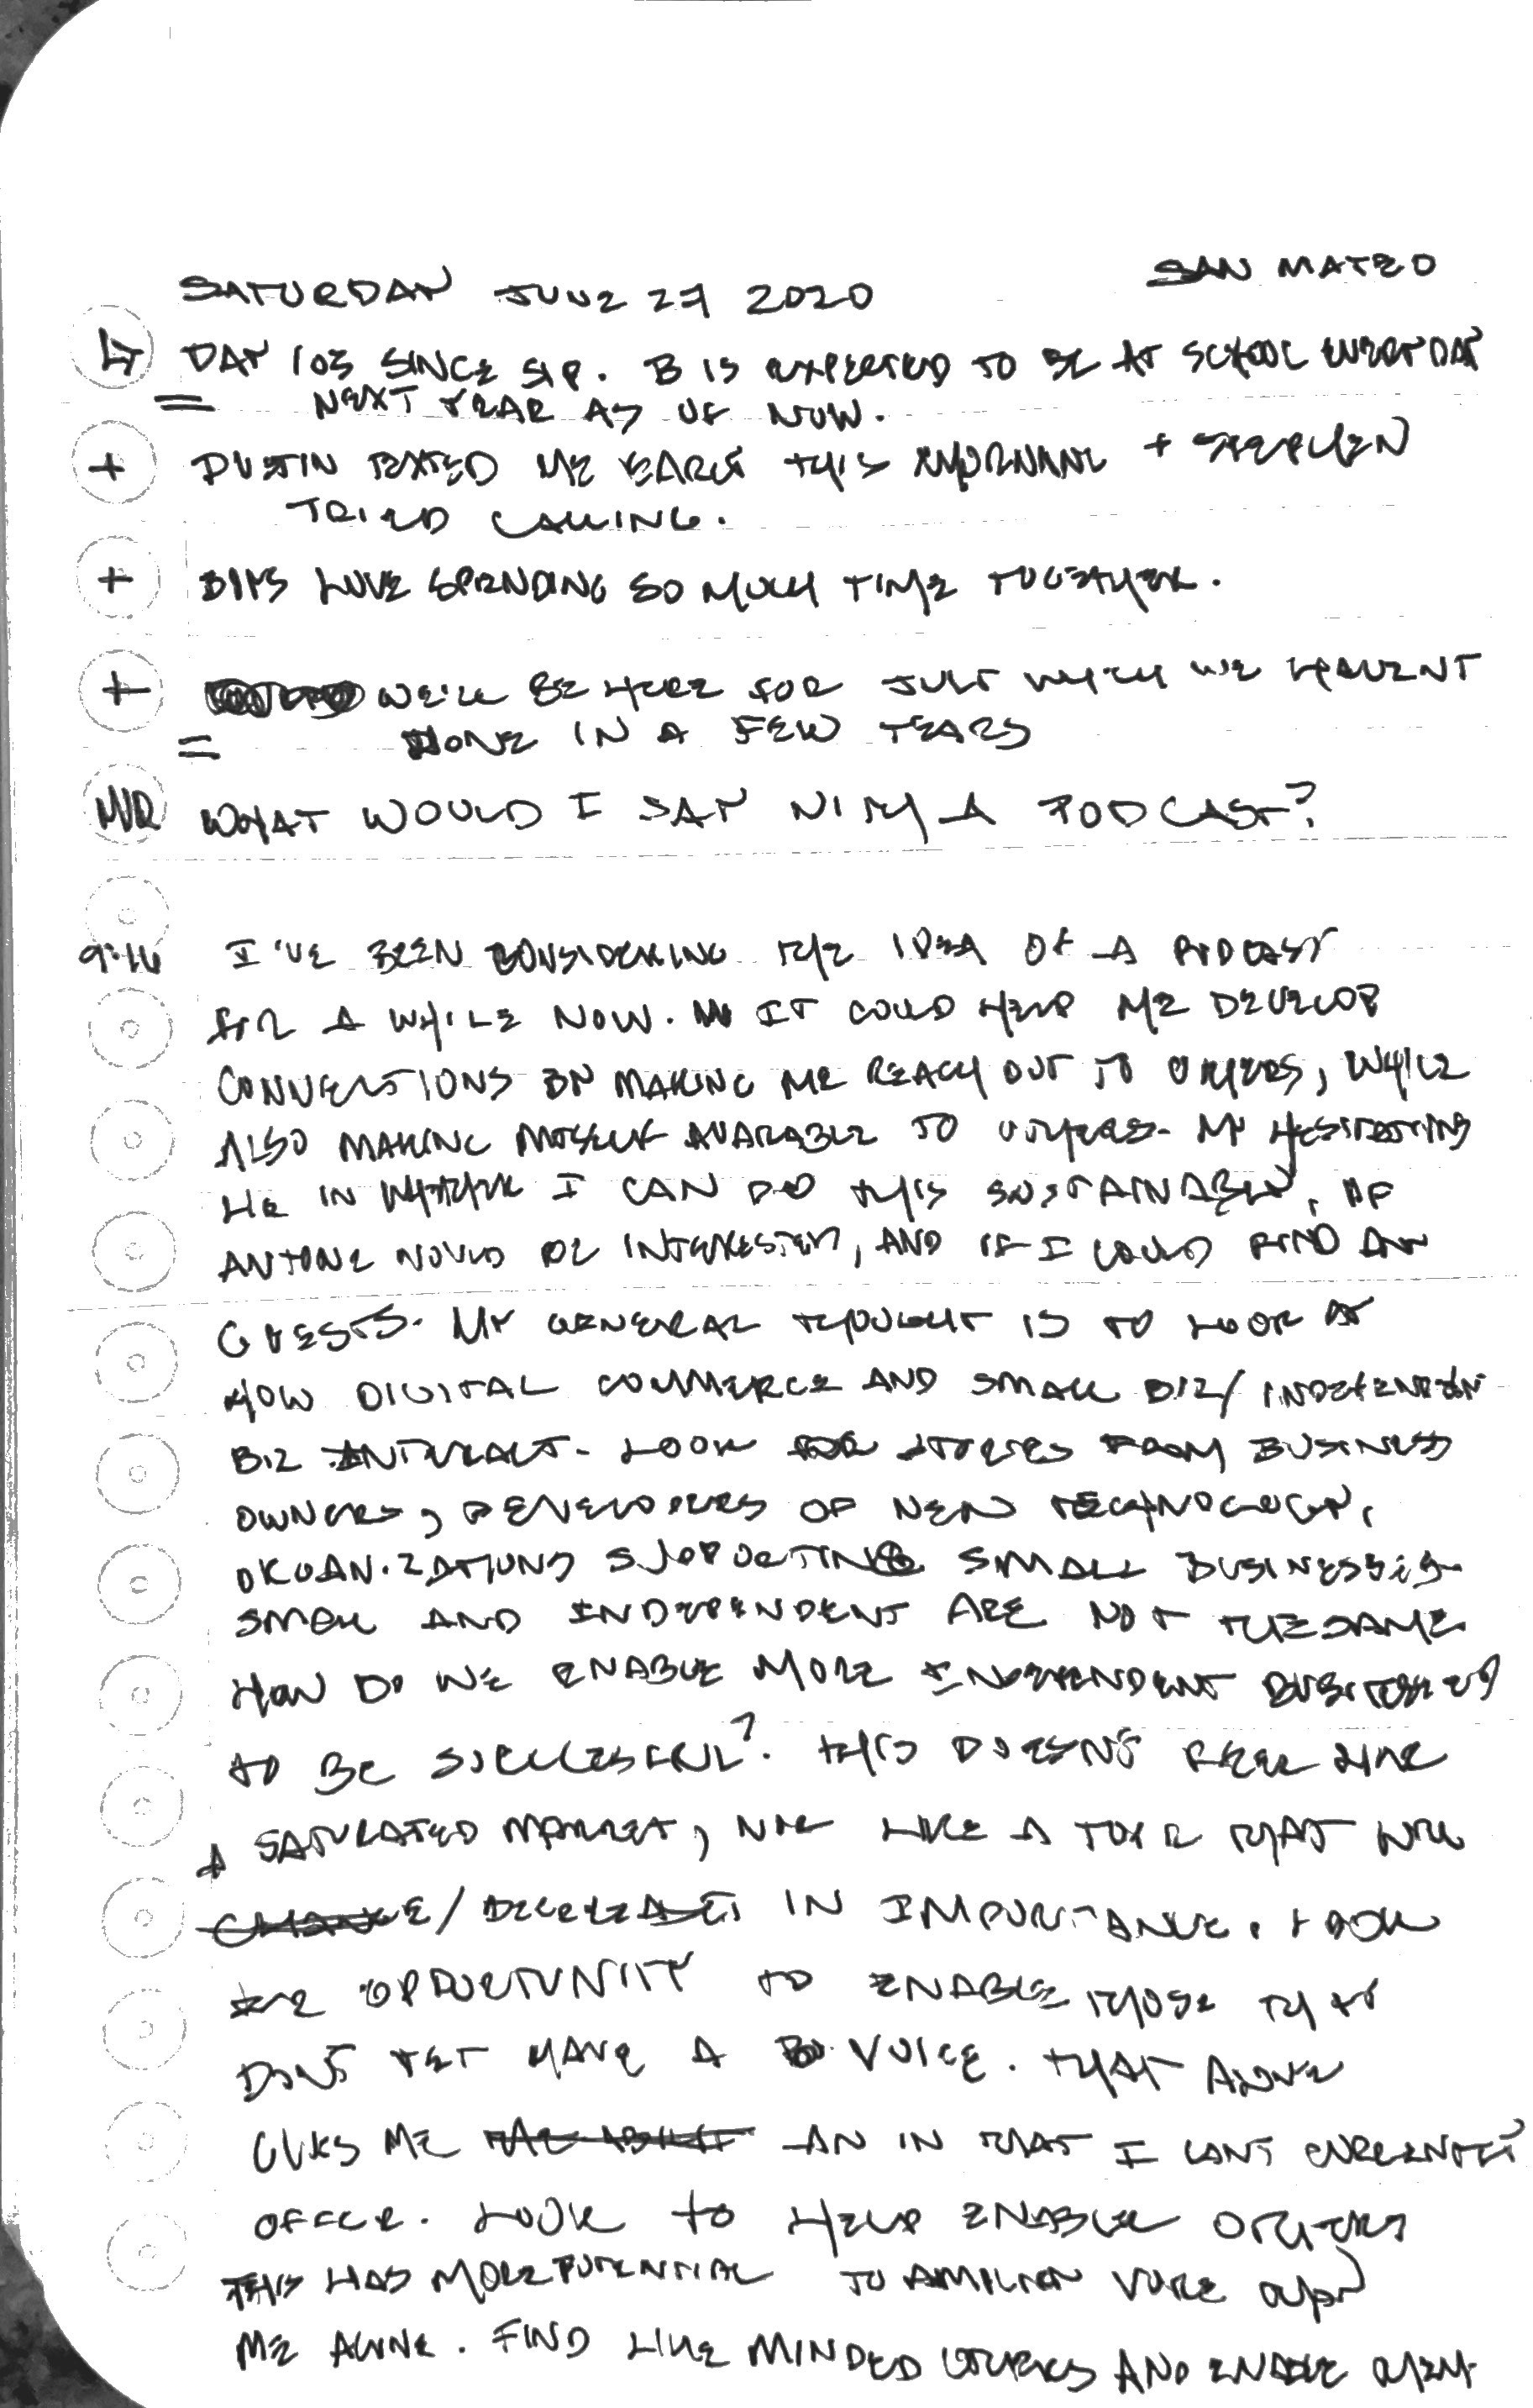 SATURDAY JUNE 27 2020
SAN MATEO
DAY 103 SINCE SIP. B IS EXPECTED TO BE AT SCHOOL EVERY DAY
NEXT YEAR AS OF NOW.
+ DUSTIN TEXTED ME EARLY THIS MORNING + STEPHEN
TRIED CALLING.
+ BOYS LOVE SPENDING SO MUCH TIME TOGETHER.
+ WE'LL BE HERE FOR JULY WHICH WE HAVENT
= DONE IN A FEW YEARS
WHAT WOULD I SAY WITH A PODCAST?
9:16 I'VE BEEN CONSIDERING THE IDEA OF A PODCAST
FOR A WHILE NOW. IT COULD HELP ME DEVELOP
BY MAKING ME REACH OUT TO OTHERS, WHILE
ALSO MAKING MYSELF AVAILABLE TO OTHERS. MY
IN WHETHER I CAN DO THIS SUSTAINABLY, IF
ANYONE WOULD BE INTERESTED, AND IF I COULD FIND ANY
GUESTS. MY GENERAL THOUGHT IS TO LOOK AT
HOW DIGITAL COMMERCE AND SMALL BIZ/ INDEPENDENT
BIZ INTERACT. LOOK FOR STORIES FROM BUSINESS
OWNERS, DEVELOPERS OF NEW TECHNOLOGY,
ORGANIZATIONS SUPPORTING SMALL BUSINESSES
SMALL AND INDEPENDENT ARE NOT THE SAME
HOW DO WE ENABLE MORE INDEPENDENT BUSINESSES
TO BE SUCCESSFUL? THIS DOESN'T FEEL LIKE
A SATURATED MARKET, NOR LIKE A TOPIC THAT WILL
CHANGE/ DECREASE IN IMPORTANCE. LOOK
OPPORTUNITY TO ENABLE THOSE THAT
DON'T YET HAVE A VOICE. THAT ALONE
GIVES ME THE ABILITY AN IN THAT I CAN'T CURRENTLY
OFFER. LOOK TO HELP ENABLE OTHERS
THIS HAS MORE POTENTIAL TO MORE THAN
ME ALONE. FIND LIKE MINDED OTHERS AND ENABLE THEM